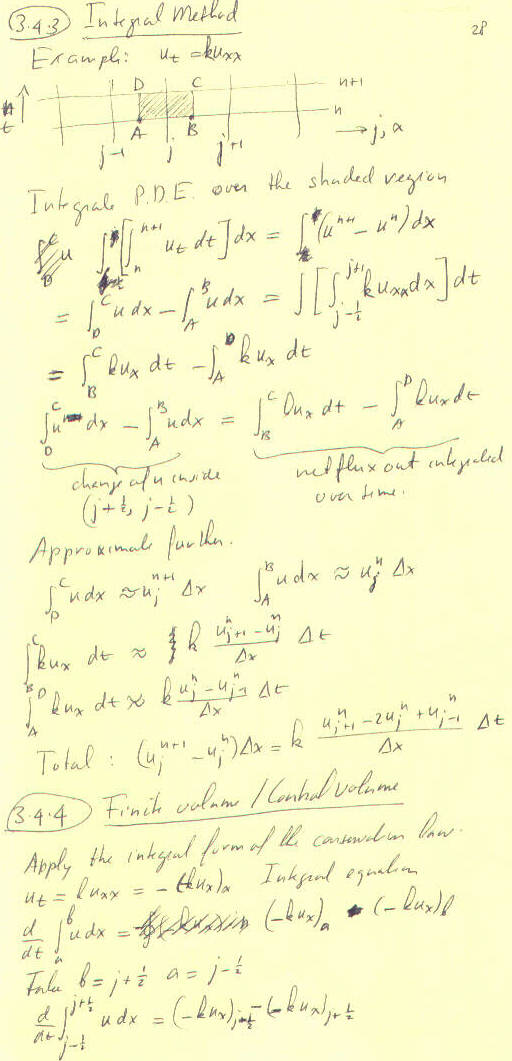 3.4.3 Integral Method
28
Example: u_t = k u_xx
D C n+1
t A B n
j-1 j j+1 → j, x
Integrate P.D.E. over the shaded region
∫ [∫_n^{n+1} u_t dt] dx = ∫ (u^{n+1} - u^n) dx
= ∫_D^C u dx - ∫_A^B u dx = ∫ [∫_{j-½}^{j+½} k u_xx dx] dt
= ∫_B^C k u_x dt - ∫_A^D k u_x dt
∫_D^C u dx - ∫_A^B u dx = ∫_B^C k u_x dt - ∫_A^D k u_x dt
change of u inside net flux out integrated
(j+½, j-½) over time.
Approximate further.
∫_D^C u dx ≈ u_j^{n+1} Δx ∫_A^B u dx ≈ u_j^n Δx
∫_B^C k u_x dt ≈ k (u_{j+1}^n - u_j^n)/Δx Δt
∫_A^D k u_x dt ≈ k (u_j^n - u_{j-1}^n)/Δx Δt
Total: (u_j^{n+1} - u_j^n) Δx = k (u_{j+1}^n - 2u_j^n + u_{j-1}^n)/Δx Δt
3.4.4 Finite volume / Control volume
Apply the integral form of the conservation law.
u_t = k u_xx = -(-k u_x)_x Integral equation
d/dt ∫_a^b u dx = (-k u_x)_a - (-k u_x)_b
Take b = j+½ a = j-½
d/dt ∫_{j-½}^{j+½} u dx = (-k u_x)_{j-½} - (-k u_x)_{j+½}